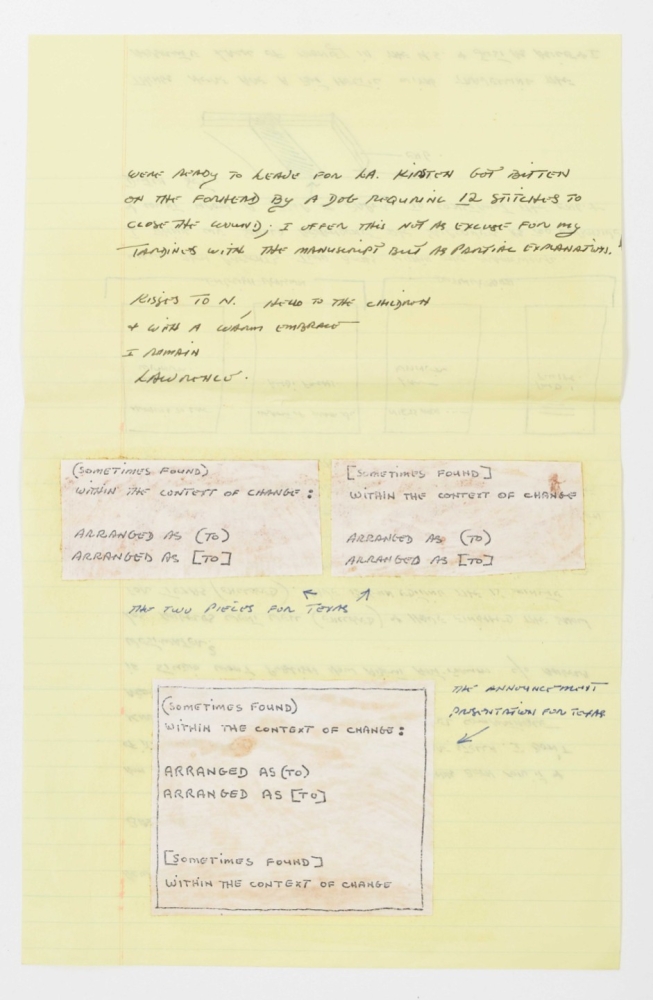 WERE READY TO LEAVE FOR LA. KIRSTEN GOT BITTEN
ON THE FORHEAD BY A DOG REQUIRING 12 STITCHES TO
CLOSE THE WOUND; I OFFER THIS NOT AS EXCUSE FOR MY
TARDINES WITH THE MANUSCRIPT BUT AS PARTIAL EXPLANATION.
KISSES TO N., HELLO TO THE CHILDREN
+ WITH A WARM EMBRACE
I REMAIN
LAWRENCE.
(SOMETIMES FOUND)
WITHIN THE CONTEXT OF CHANGE:
ARRANGED AS (TO)
ARRANGED AS [TO]
[SOMETIMES FOUND]
WITHIN THE CONTEXT OF CHANGE
ARRANGED AS (TO)
ARRANGED AS [TO]
THE TWO PIECES FOR TEXAS
THE ANNOUNCEMENT
PRESENTATION FOR TEXAS
(SOMETIMES FOUND)
WITHIN THE CONTEXT OF CHANGE:
ARRANGED AS (TO)
ARRANGED AS [TO]
[SOMETIMES FOUND]
WITHIN THE CONTEXT OF CHANGE